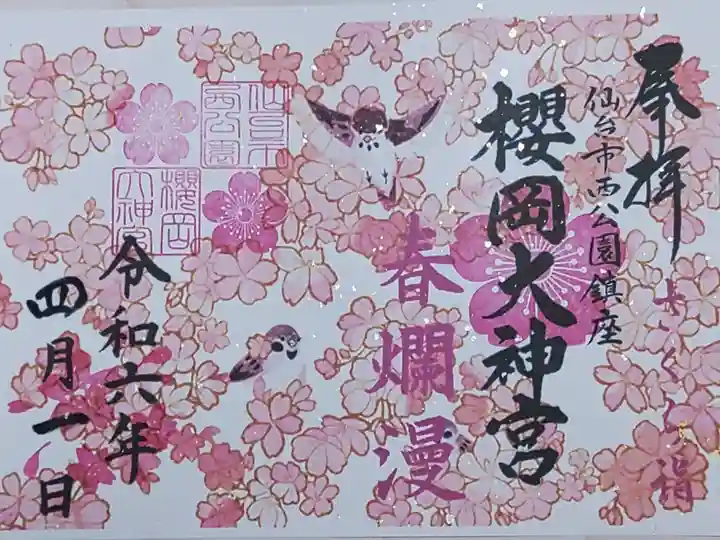 奉拝
さくら詣
仙台市西公園鎮座
櫻岡大神宮
春爛漫
仙台市
西公園
櫻岡
大神宮
令和六年
四月一日